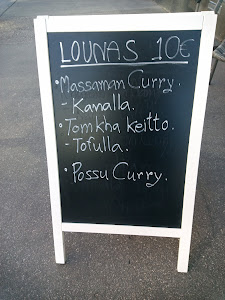 LOUNAS 10€
•Massaman Curry.
- Kanalla.
•Tom kha keitto.
- Tofulla.
• Possu Curry.